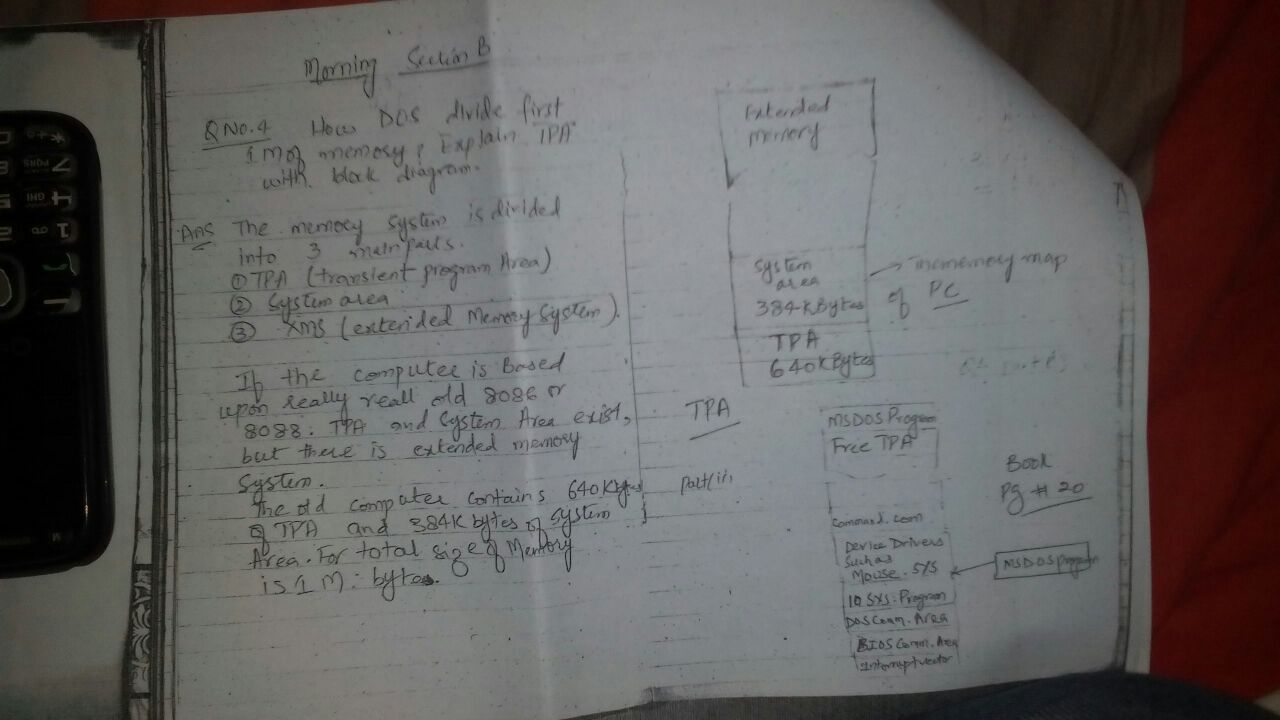 Morning Section B
Q No.4 How DOS divide first
1M of memory, Explain TPA
with block diagram.
Ans The memory system is divided
into 3 main parts.
① TPA (transient program Area)
② System area
③ XMS (extended Memory System).
If the computer is Based
upon really reall old 8086 or
8088: TPA and System Area exist,
but there is extended memory
System.
The old computer contains 640Kbytes
of TPA and 384K bytes of System
Area. For total size of Memory
is 1 M: bytes.
Extended
memory
System
area
384KBytes
TPA
640KBytes
memory map
of PC
TPA
MSDOS Program
Free TPA
Book
Pg # 20
Command.com
Device Drivers
Such as
Mouse. SYS
MSDOS program
IO SYS: Program
DOS Comm. Area
BIOS Comm. Area
Interrupt vector